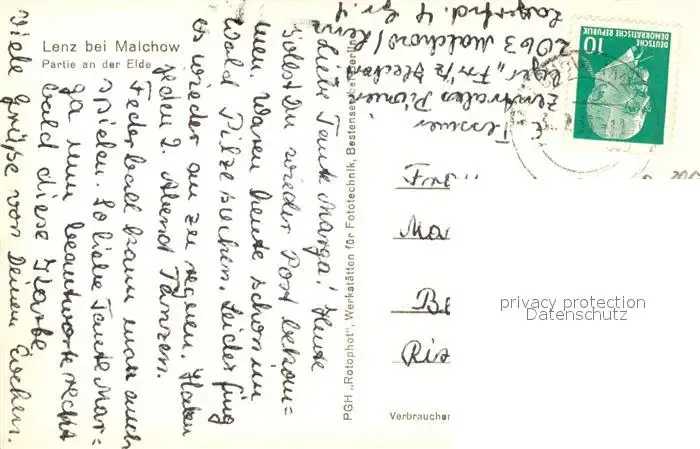 Lenz bei Malchow
Partie an der Elde
Liebe Tante Marga! Heute
sollst Du wieder Post bekom=
men. Waren heute schon im
Wald Pilze suchen. Leider fing
es wieder an zu regnen. Haben
jeden 2. Abend Tanzen.
Federball kann man auch
spielen. So liebe Tante Mar=
ga nun beantworte recht
bald diese Karte
Viele Grüße von Deinem
PGH „Rotophot", Werkstätten für Fototechnik, Bestensee
Zentrales Pionier
lager „Fritz
2063 Malchow/Lenz
Lagerfrd. 4 Gr. 4
DEUTSCHE DEMOKRATISCHE REPUBLIK
10
Ma
Be
Verbraucher
privacy protection
Datenschutz